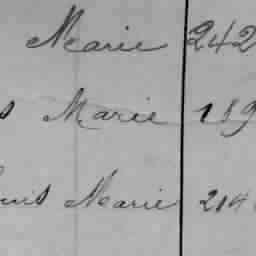 Marie 242
s Marie 189
uis Marie 214